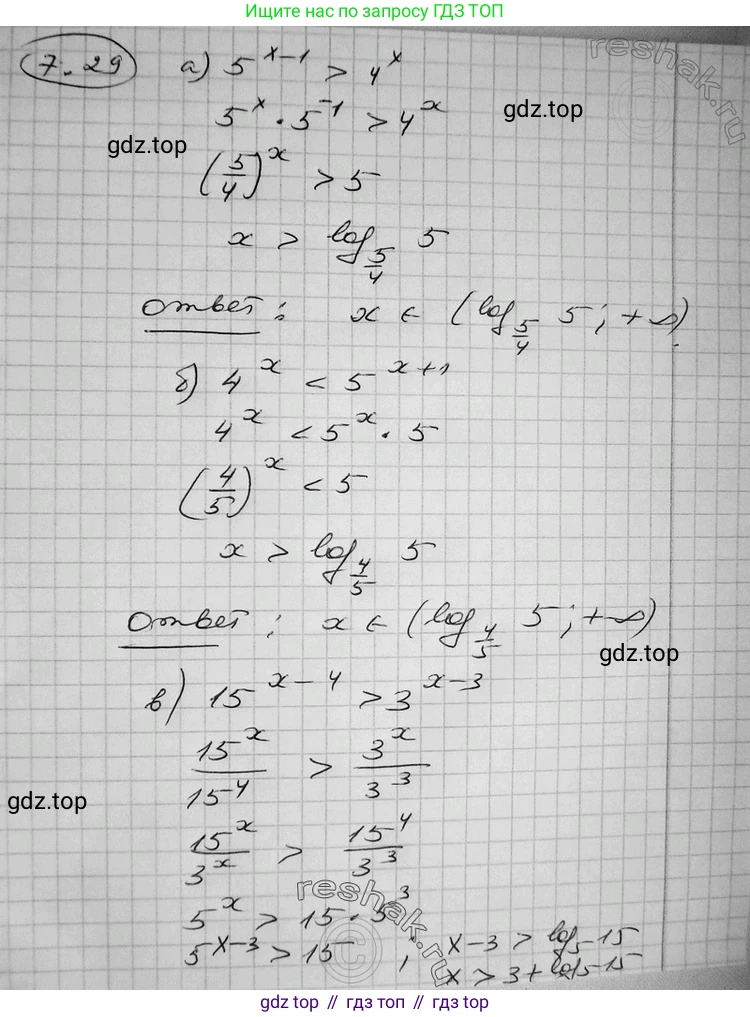 Ищите нас по запросу ГДЗ ТОП
7.29 а) 5^{x-1} > 4^x
reshak.ru
5^x · 5^{-1} > 4^x
gdz.top
gdz.top
(5/4)^x > 5
x > log_{5/4} 5
ответ: x ∈ (log_{5/4} 5; +∞)
б) 4^x < 5^{x+1}
4^x < 5^x · 5
(4/5)^x < 5
x > log_{4/5} 5
ответ: x ∈ (log_{4/5} 5; +∞)
gdz.top
в) 15^{x-4} > 3^{x-3}
15^x/15^4 > 3^x/3^3
gdz.top
15^x/3^x > 15^4/3^3
reshak.ru
5^x > 15 · 5^3
5^{x-3} > 15 ; x-3 > log_5 15
x > 3 + log_5 15
gdz.top // гдз топ // gdz.top